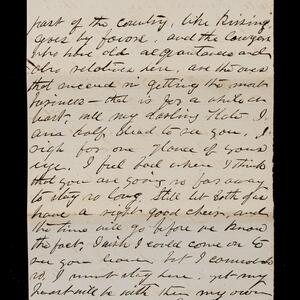 part of the country, like kissing
goes by favor, and the lawyers
who have old acquaintances and
also relatives here, are the ones
that succeed in getting the most
business — that is for a while at
least, well my darling Kate I
am half dead to see you, I
sigh for one glance of your
eye. I feel bad when I think
that you are going so far away
to stay so long. Still let both of us
have a right good cheer, and
the time will go before we know
the fact, I wish I could come on to
see you leave but I cannot do
so, I must stay here. yet my
heart will be with thee my own